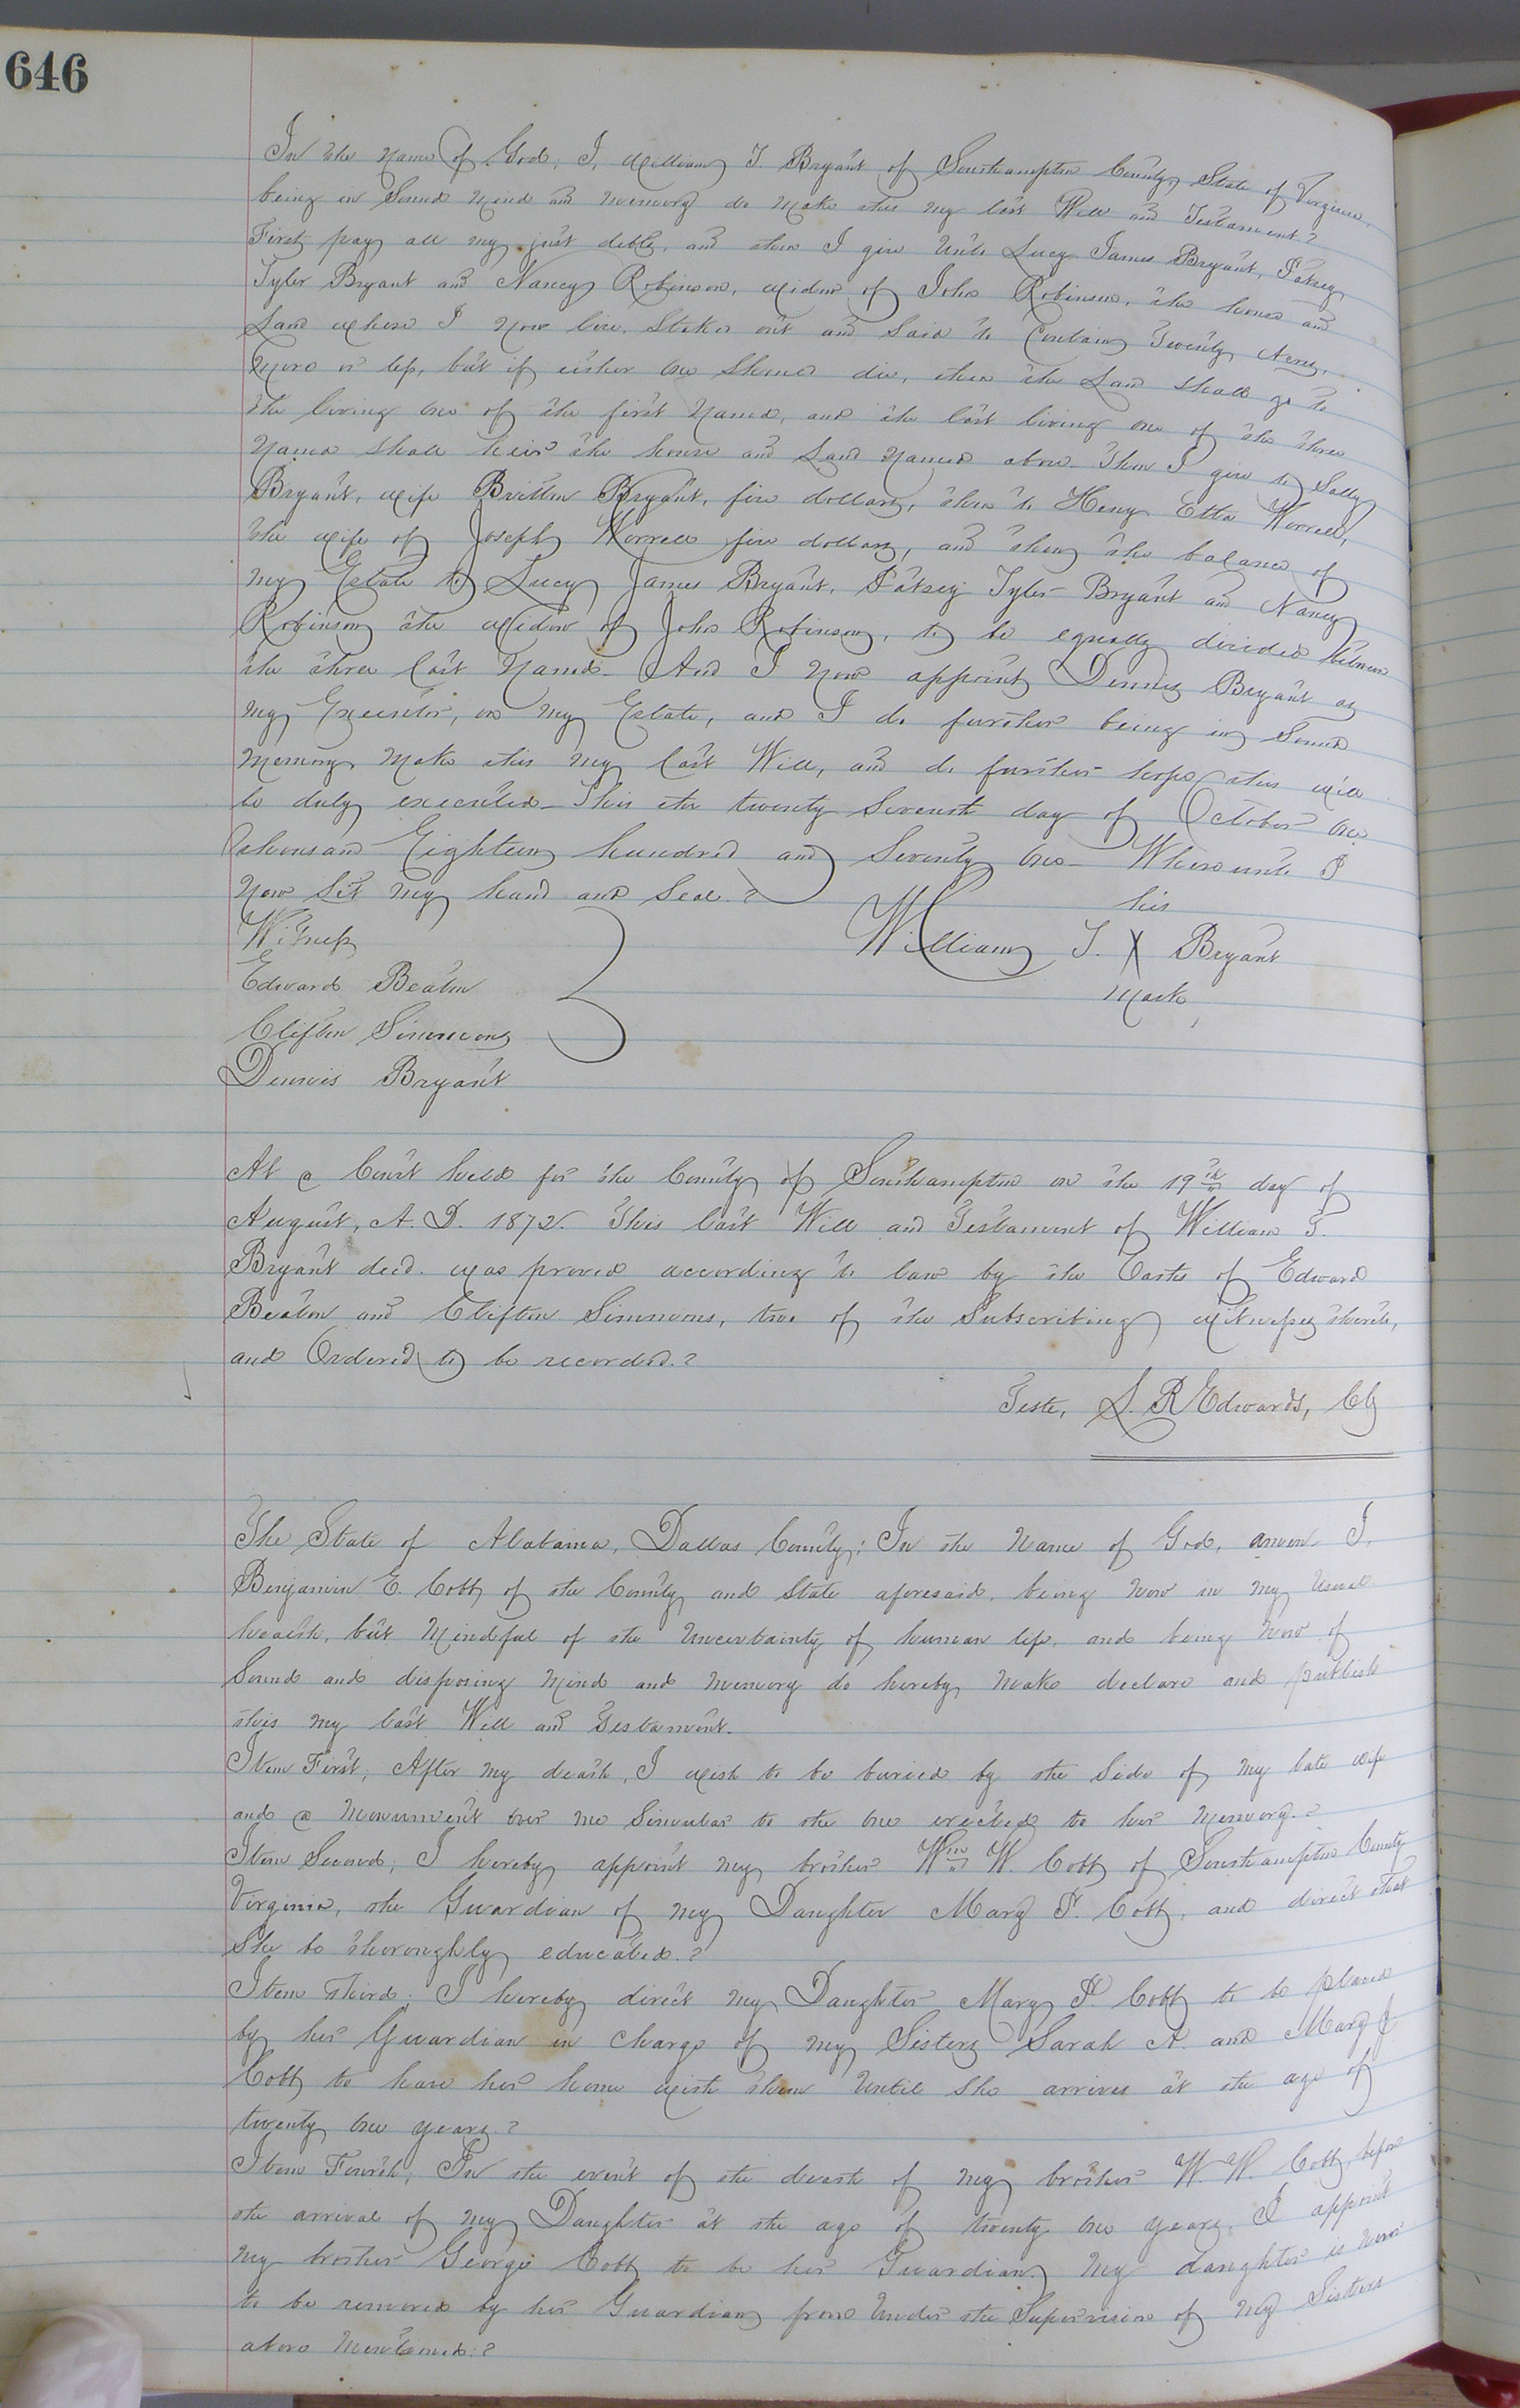 646
In the Name of God, I, William T. Bryant of Southampton County, State of Virginia,
being in Sound Mind and memory do make this my last Will and Testament.
First, pay all my just debts, and then I give Unto Lucy James Bryant, Patsey
Tyler Bryant and Nancy Robinson, widow of John Robinson, the house and
Land where I now live. Stakes out and Said to Contain Twenty Acres,
More or less, but if either one should die, then the Land shall go to
the living one of the first Named, and the last living one of the three
Named shall heir the house and Land Named above. Then I give to Sally
Bryant, wife Britton Bryant, five dollars, then to Heny Etta Worrell,
the wife of Joseph Worrell five dollars, and then the balance of
my Estate to Lucy James Bryant, Patsey Tyler Bryant and Nancy
Robinson the widow of John Robinson, to be equally divided between
the three last Named. And I now appoint Dennis Bryant as
my Executor, on my Estate, and I do further being in Sound
Memory, Make this my last Will, and do further hope this will
be duly executed. This the twenty Seventh day of October One
thousand Eighteen hundred and Seventy One. Whereunto I
Now Set my hand and Seal.
his
Witness
William T. X Bryant
Edward Beaton
Mark
Clifton Simmons
Dennis Bryant
At a Court held for the County of Southampton on the 19th day of
August, A. D. 1872. This last Will and Testament of William T.
Bryant decd. was proved according to law by the Oaths of Edward
Beaton and Clifton Simmons, two of the Subscribing Witnesses thereto,
and Ordered to be recorded.
Teste, L. R Edwards, Clk
The State of Alabama, Dallas County: In the Name of God, amen I,
Benjamin E. Cobb of the County and State aforesaid, being now in my Usual
health, but Mindful of the Uncertainty of human life, and being Now of
Sound and disposing Mind and Memory do hereby make declare and publish
this my last Will and Testament.
Item First; After my death, I wish to be buried by the Side of my late wife
and a Monument over me Similar to the One erected to her Memory.
Item Second; I hereby appoint my brother Wm W. Cobb of Southampton County
Virginia, the Guardian of my Daughter Mary P. Cobb, and direct that
She be thoroughly educated.
Item Third; I hereby direct my Daughter Mary P. Cobb to be placed
by her Guardian in charge of my Sisters Sarah A. and Mary J
Cobb to have her home with them Until She arrives at the age of
twenty One years.
Item Fourth; In the event of the death of my brother W. W. Cobb, before
the arrival of my Daughter at the age of twenty One years, I appoint
my brother George Cobb to be her Guardian, My daughter is never
to be removed by her Guardian from Under the Supervision of my Sisters
above Mentioned.